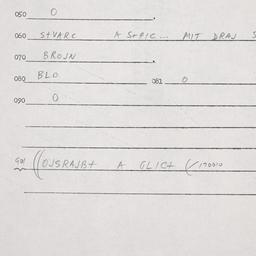 050 0
060 StVARC A StPIC... MIT DRAJ S
070 BROJN
080 BLO 081 0
090 0
A GLICt